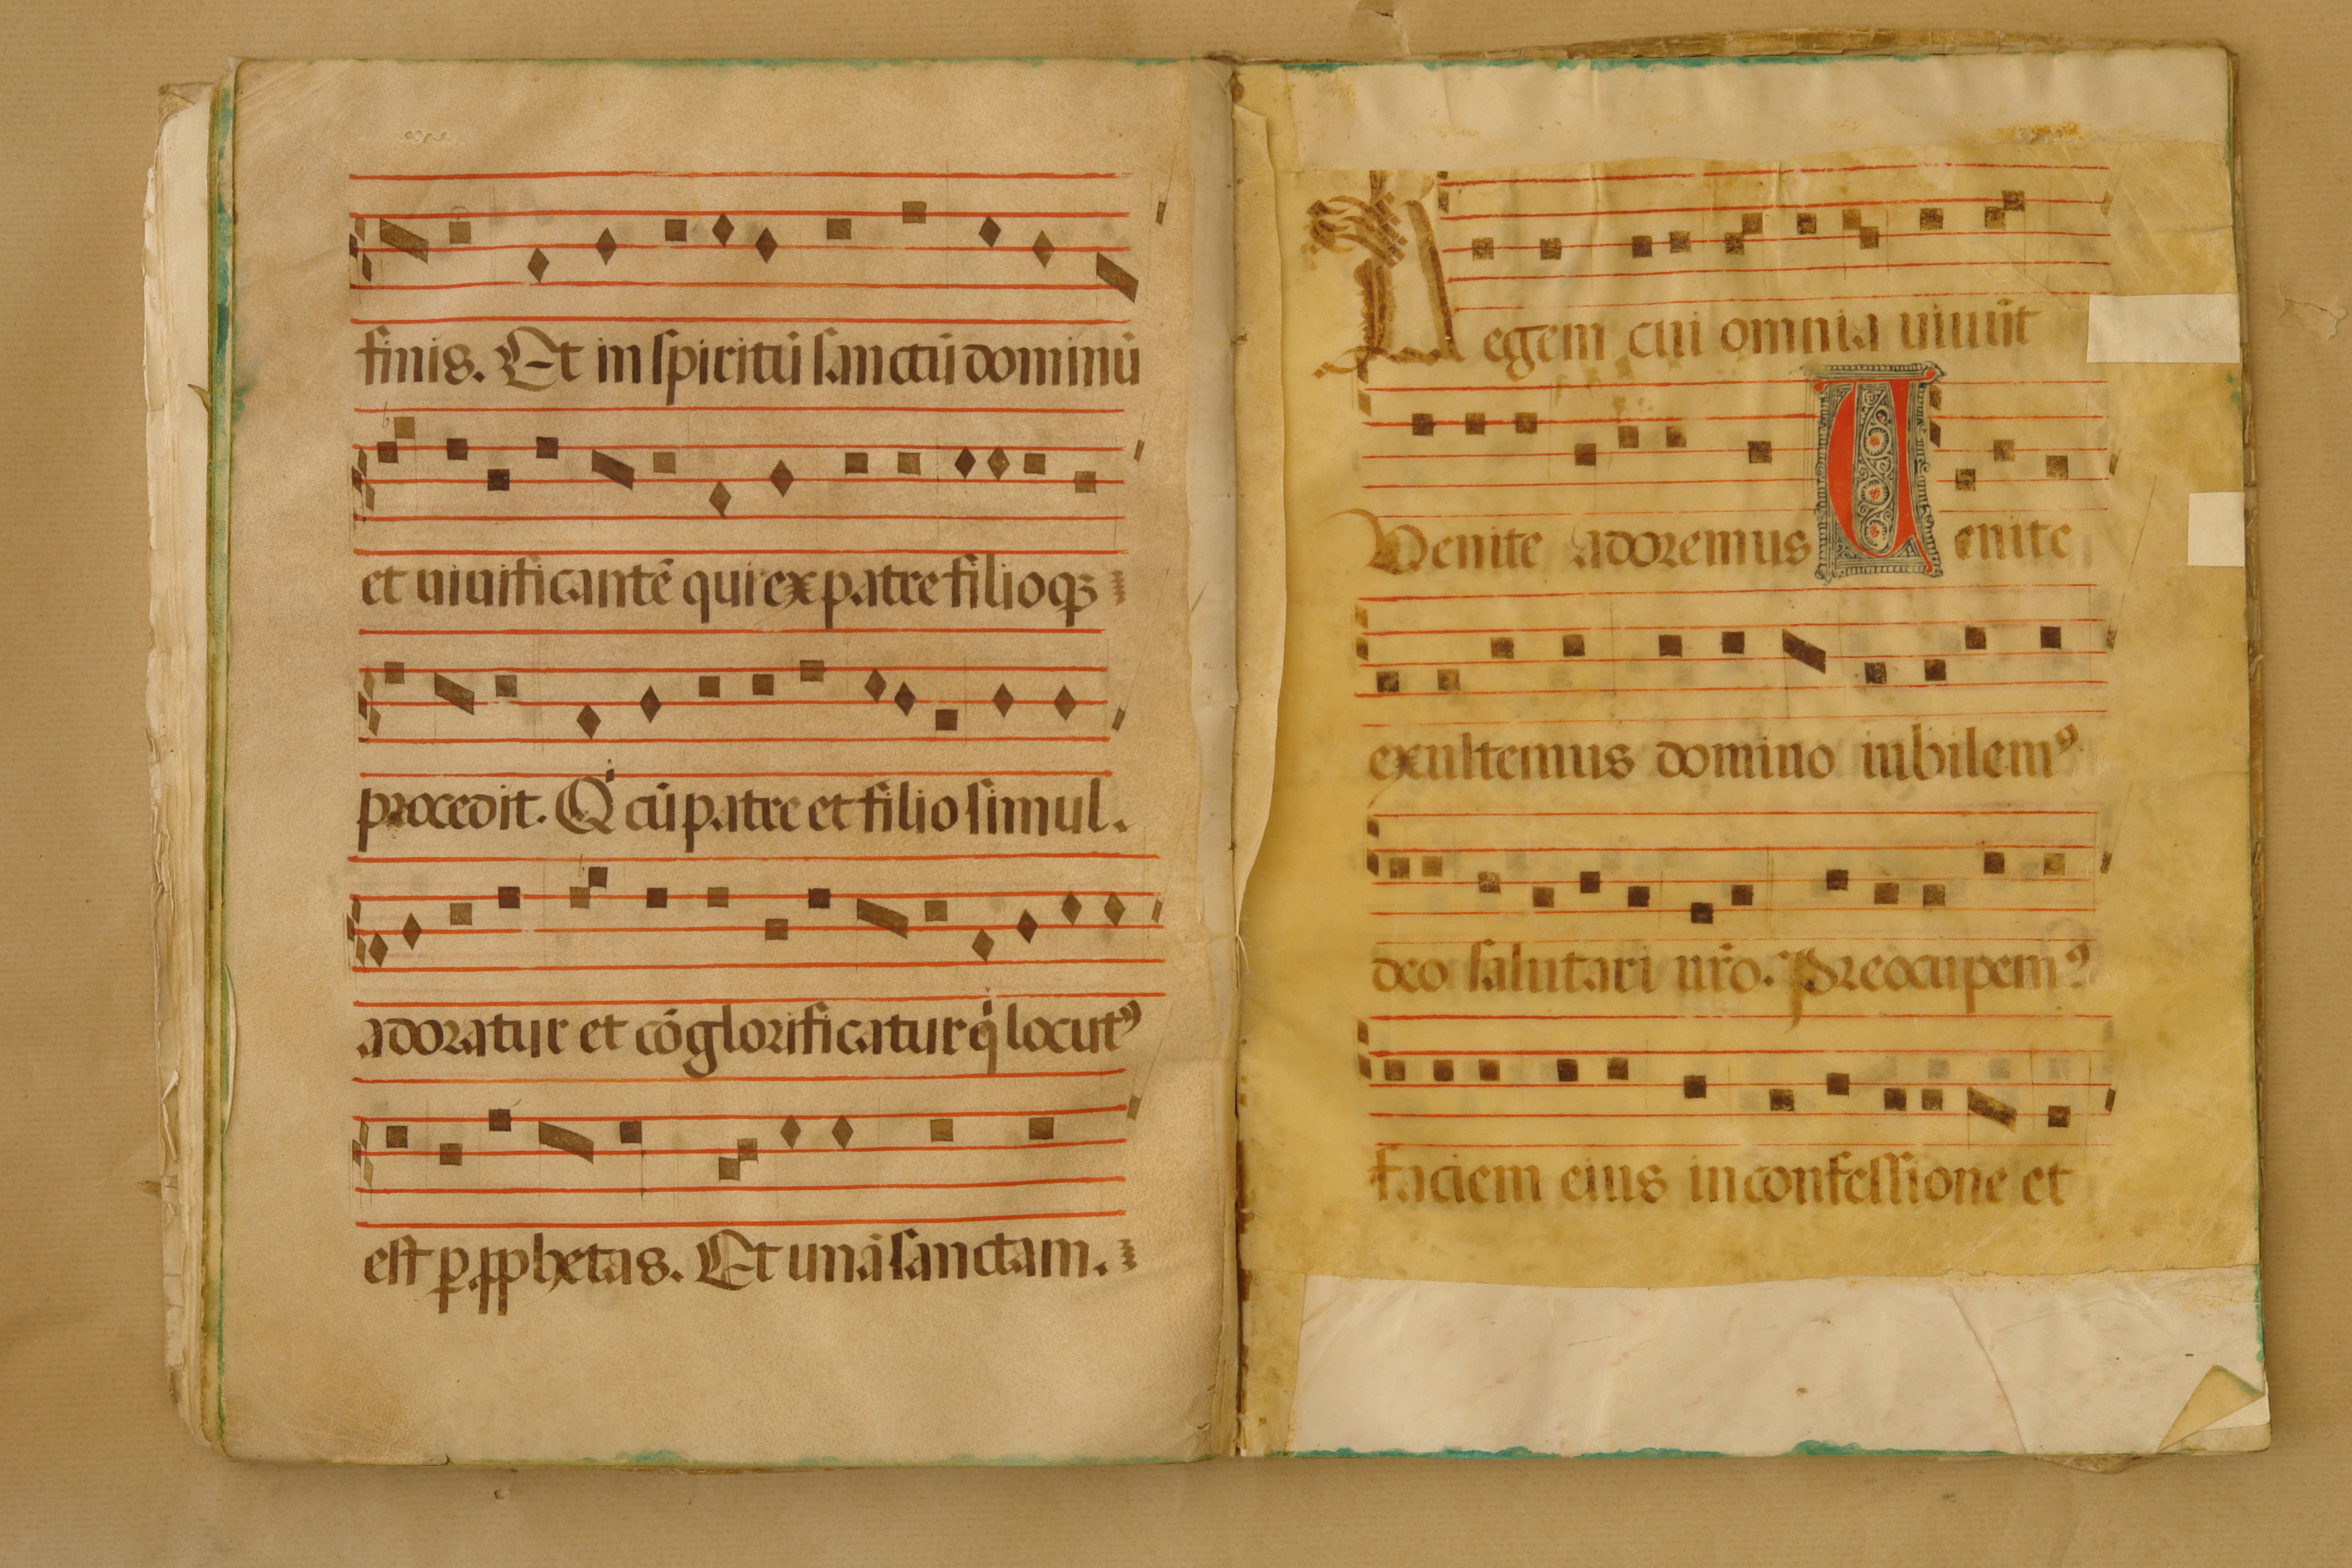 finis. Et in spiritū sanctū dominū
et uiuificantē qui ex patre filioqꝫ
procedit. Qͥ cū patre et filio simul.
adoratur et cōglorificatur qͥ locutꝰ
est ꝑ ꝓphetas. Et unā sanctam.
Regem cui omnia uiuūt
Venite adoremus Uenite
exultemus domino iubilemꝰ
deo salutari nr̄o. Preocupemꝰ
faciem eius in confessione et